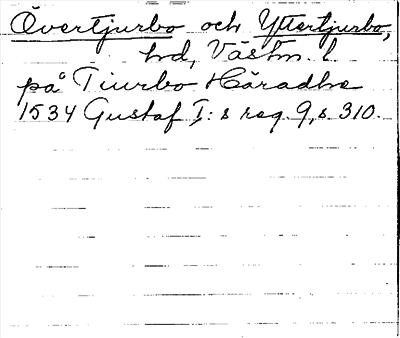 Övertjurbo och Yttertjurbo,
hd, Västm. l.
på Tiurbo Häradhe
1534 Gustaf I:s reg. 9, s. 310.